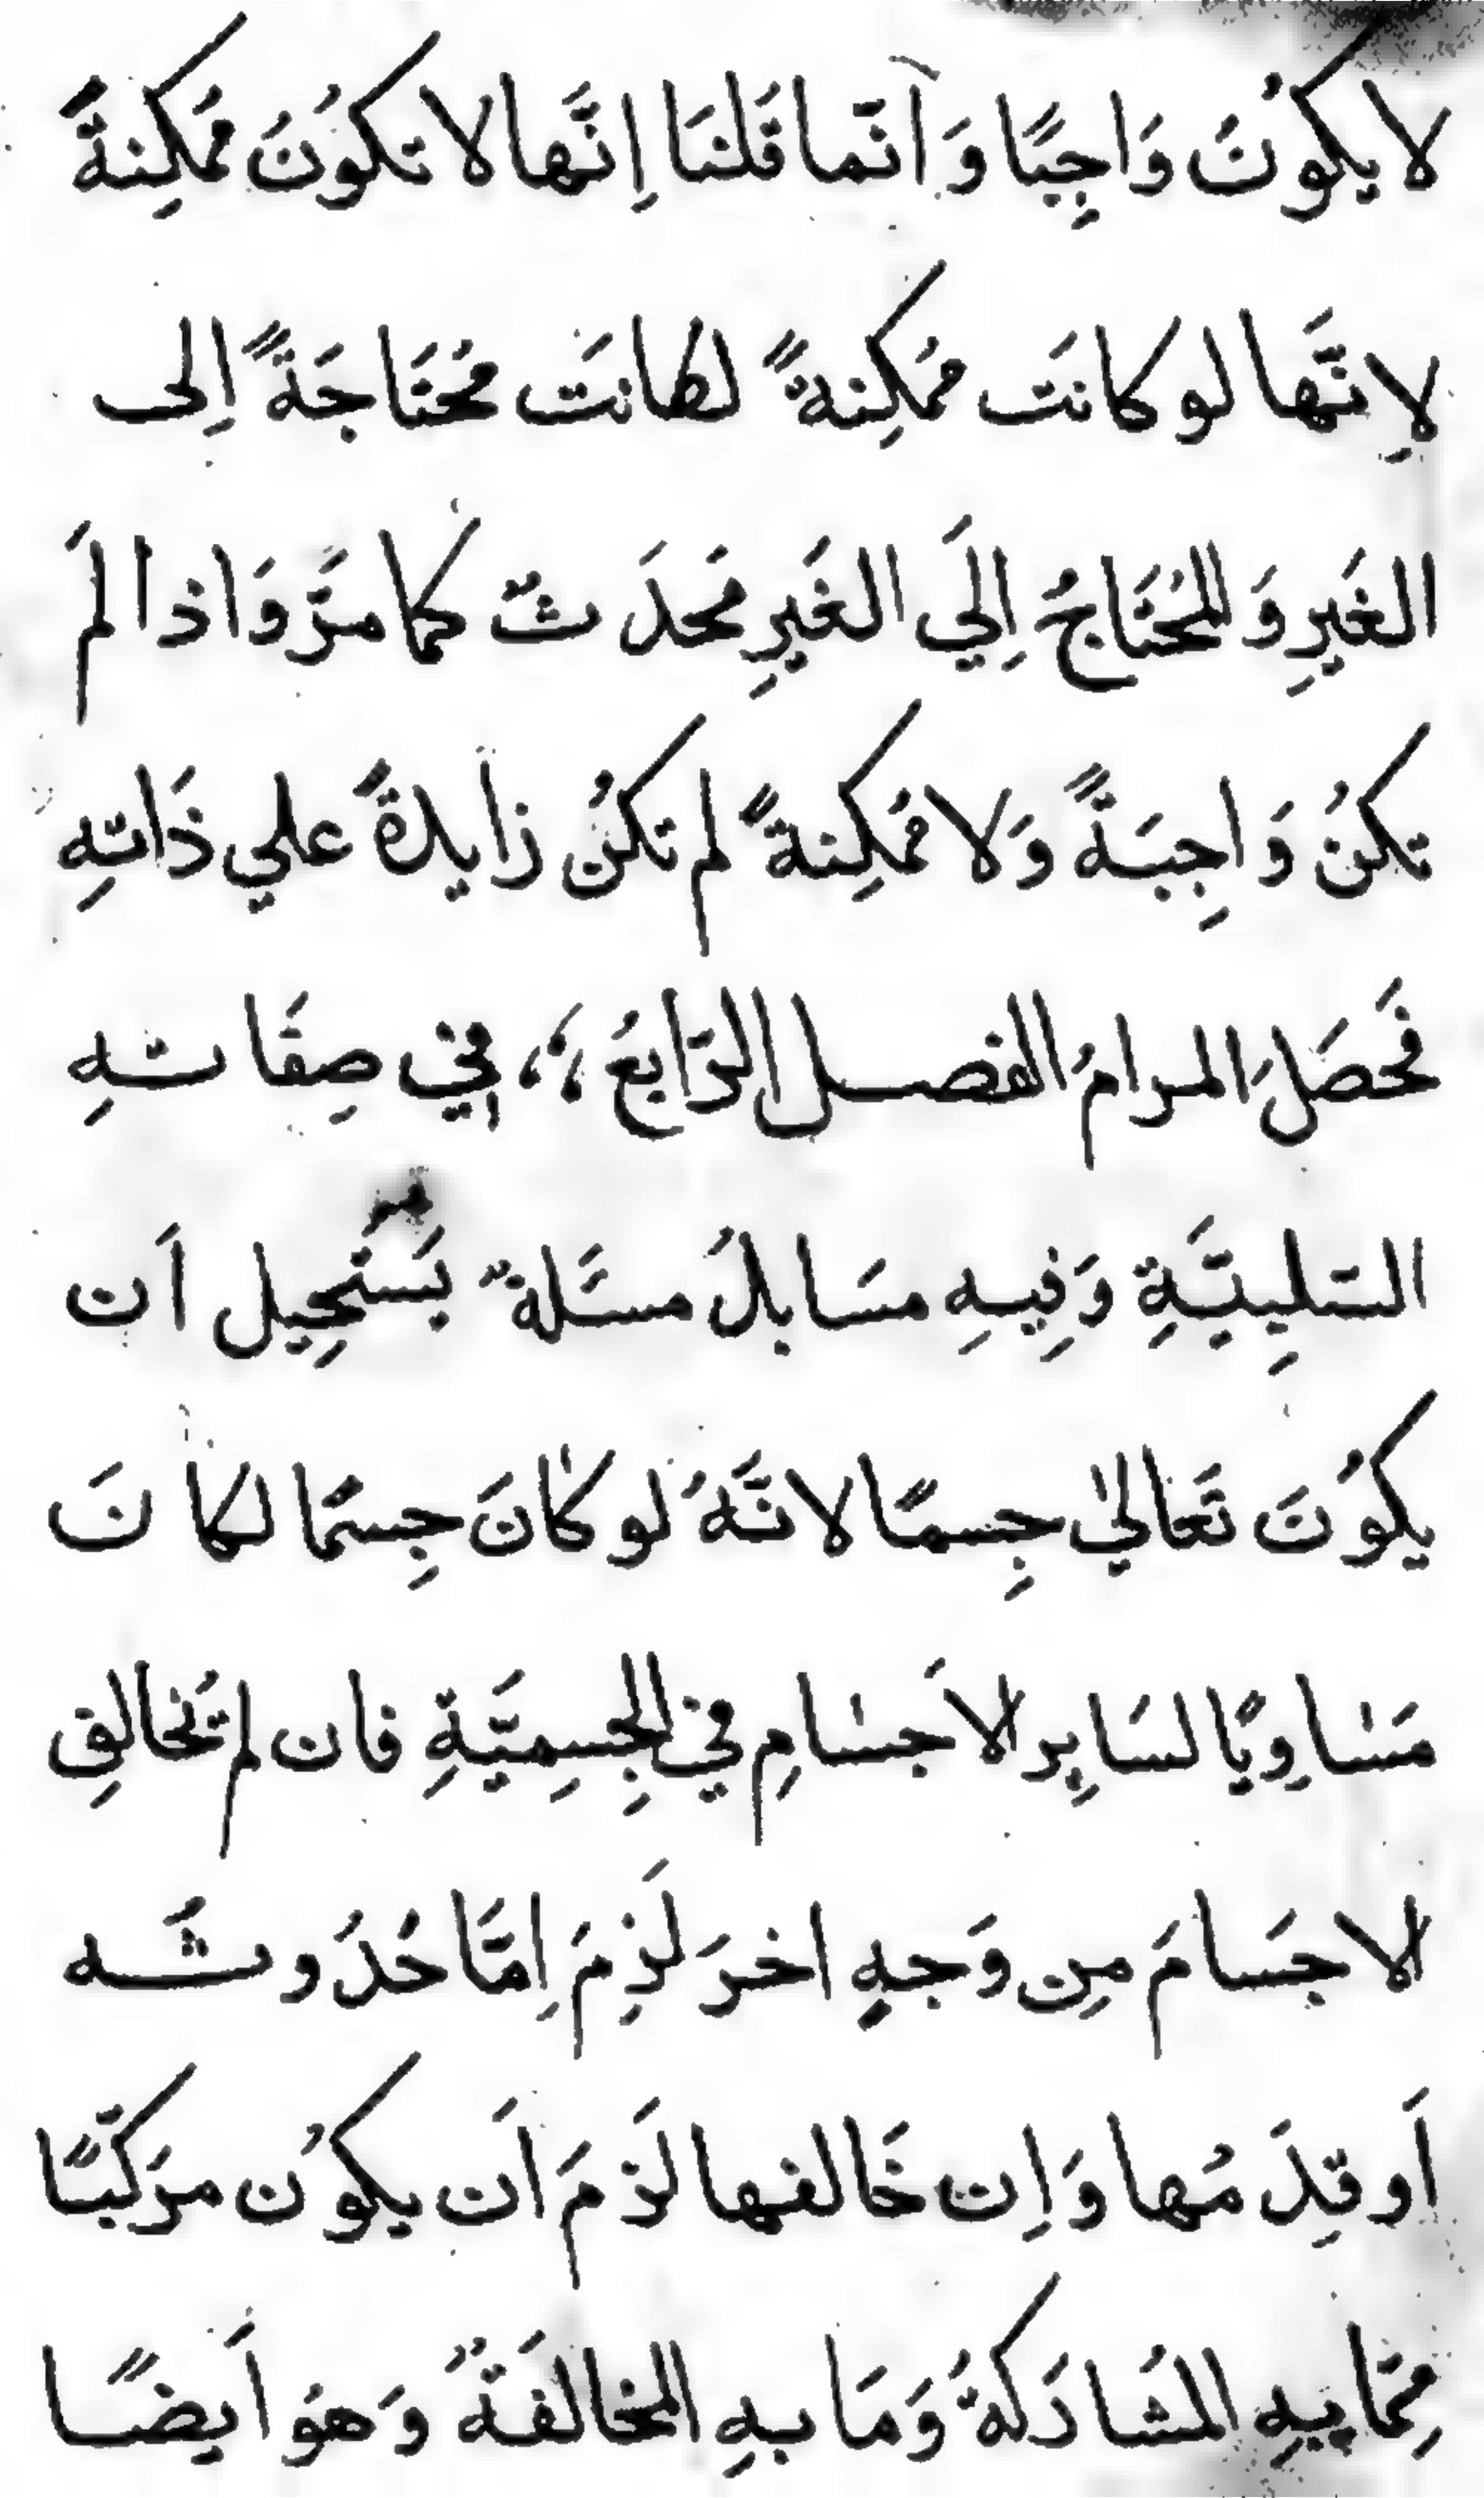 لا يكوُنَ وَاجِبًا وَ انّما قلنَا اِنَّها لا تكوُنَ مُمكِنةً
لِانَّها لو كانتَ مُمكِنةً لكانتَ مُحتَاجَةً اِلى
الغَيرِ وَ المُحتَاجُ اِلَي الغَيرِ مَحدَثٌ كما مرَّ وَاذا لمَ
تكنُ وَاجِبَةً وَلا مُمكِنةً لم تكنُ زايدةً علي ذَاتِهِ
فحَصَلَ المرامُ الفصل الرّابعُ في صِفَاتهِ
السّلِبيَّةِ وَفِيهِ مسَايلُ مسئَلةٌ يَستَحِيل اَن
يكوُنَ تَعَاليٰ جِسمًا لانَّهُ لو كانَ جِسمًا لكانَ
مَسَاوِيًا لسَايِر الاَجسَامِ في الجِسمِيَّةِ فان لم تُخالفِ
الاجسَامَ مِن وَجهٍ اخرَ لَزِمَ اِمَّا حُدُوثَه
اَو قِدَمُها وَاِن خَالفها لَزمَ اَن يكوُن مرَكبًّا
مِمَّا بِهِ المشَارَكةُ وَمَا بهِ المخالفَةُ وَهوَ اَيضًا